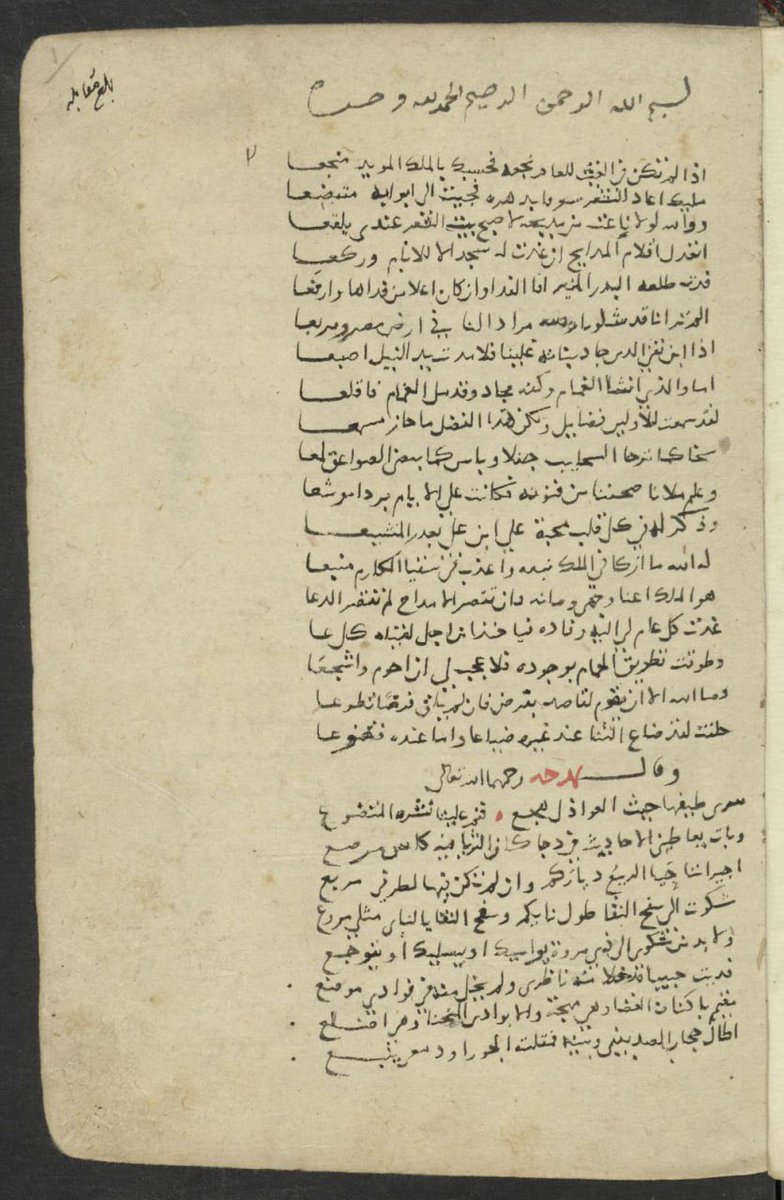 بلغ مقابلة
بسم الله الرحمن الرحيم الحمد لله وحده
اذا لم تكن في الغيث للعام نجعه فحسبك بالملك المويد منجعا
مليك اعاد الشعر سوقا بدهره فجيت الى ابوابه متبضعا
ووالله لولا باعث من مديحه لاصبح بيت الشعر عندي بلقعا
اغدل اقلام المدايح ان غدت له سجدا للانام وركعا
فدت طلعه البدر المنير انا الفدا وان كان اعلا من فداها وارفعا
الم تر انا قد سلونا مراد النا في ارض مصر ومربعا
اذا ابن تقي الدين جاد بنانه علينا فلا مدت يد النيل اصبعا
اما والذي انشا الغمام وكفه فجاد وقد مل الغمام فاقلعا
لقد سمعت للاولين فضايل ولكن هذا الفضل ما حاز مسمعا
سخا كما ترخا السحايب حفلا وباس كما بعض الصواعق لمعا
وعلم ملانا صحفنا من فنونه فكانت على الايام بردا موشعا
وذكر له في كل قلب محبة علي ابن علي بعدن التشيعا
له الله ما ازكا في الملك نبعه واعذب في سقيا المكارم منبعا
هو الملك اغنا وحمى ومانه فان تقتصر الامداح لم نقتصر الدعا
غدت كل عام لي اليه وفاده فيا حبذا من اجل لقياه كل عا
وطوقت تطويق الحمام بوجوده فلا عجب لي ان احوم واشجعا
وما الله الا ان يقوم لقاصد بفرض فان لم يلق فرضا تطوعا
حلفت لقد ضاع الثنا عند غيره ضياعا واما عنده فتضوعا
وقال يمدحه رحمهما الله تعالى
سرى طيفها حيث العواذل هجع فنم علينا نشره المتضوع
وبات يعاطيني الاحاديث في دجا كان الثريا فيه كاس مرصع
اجيراننا حيا الربيع دياركم وان لم تكن فيها لطرفي مربع
شكوت الى سفح النقا طول نايكم وسفح النقا بالناي مثلي مروع
ولا بد من شكوى الى ذي مروة يواسيك او يسليك او يتوجع
فديت حبيبا قد خلا منه ناظري ولم يخل منه في فوادي موضع
مقيم باكناف الغضا وهي مهجة والا بوادي المنحنا وهي اضلع
اطال حجاز الصد بيني وبينه فمقلته الحورا ودمعي ينبع